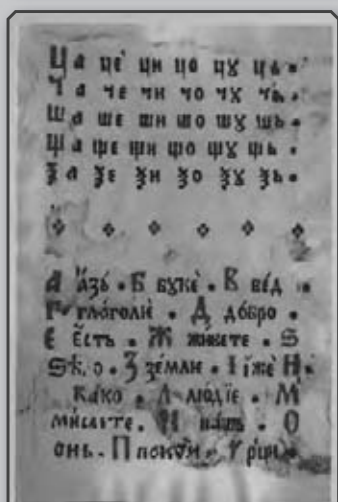 Ца цѐ ци цо цꙋ ць.
Ча че чи чо чꙋ чь.
Ша ше ши шо шꙋ шь.
Ща ще щи що щꙋ щь.
Ѯа ѯе ѯи ѯо ѯꙋ ѯь.
А а҆́зъ. Б букѐ. В вѣ́д
Г глаголѝ. Д до́бро.
Є є҆́сть. Ж живѣте. Ѕ
Ѕѣ́ло. З земли. І і҆́же Н.
Како. Л лю́дїе. М
мꙑслѣте. Н нашъ. О
онь. П поко́и. Рцы.